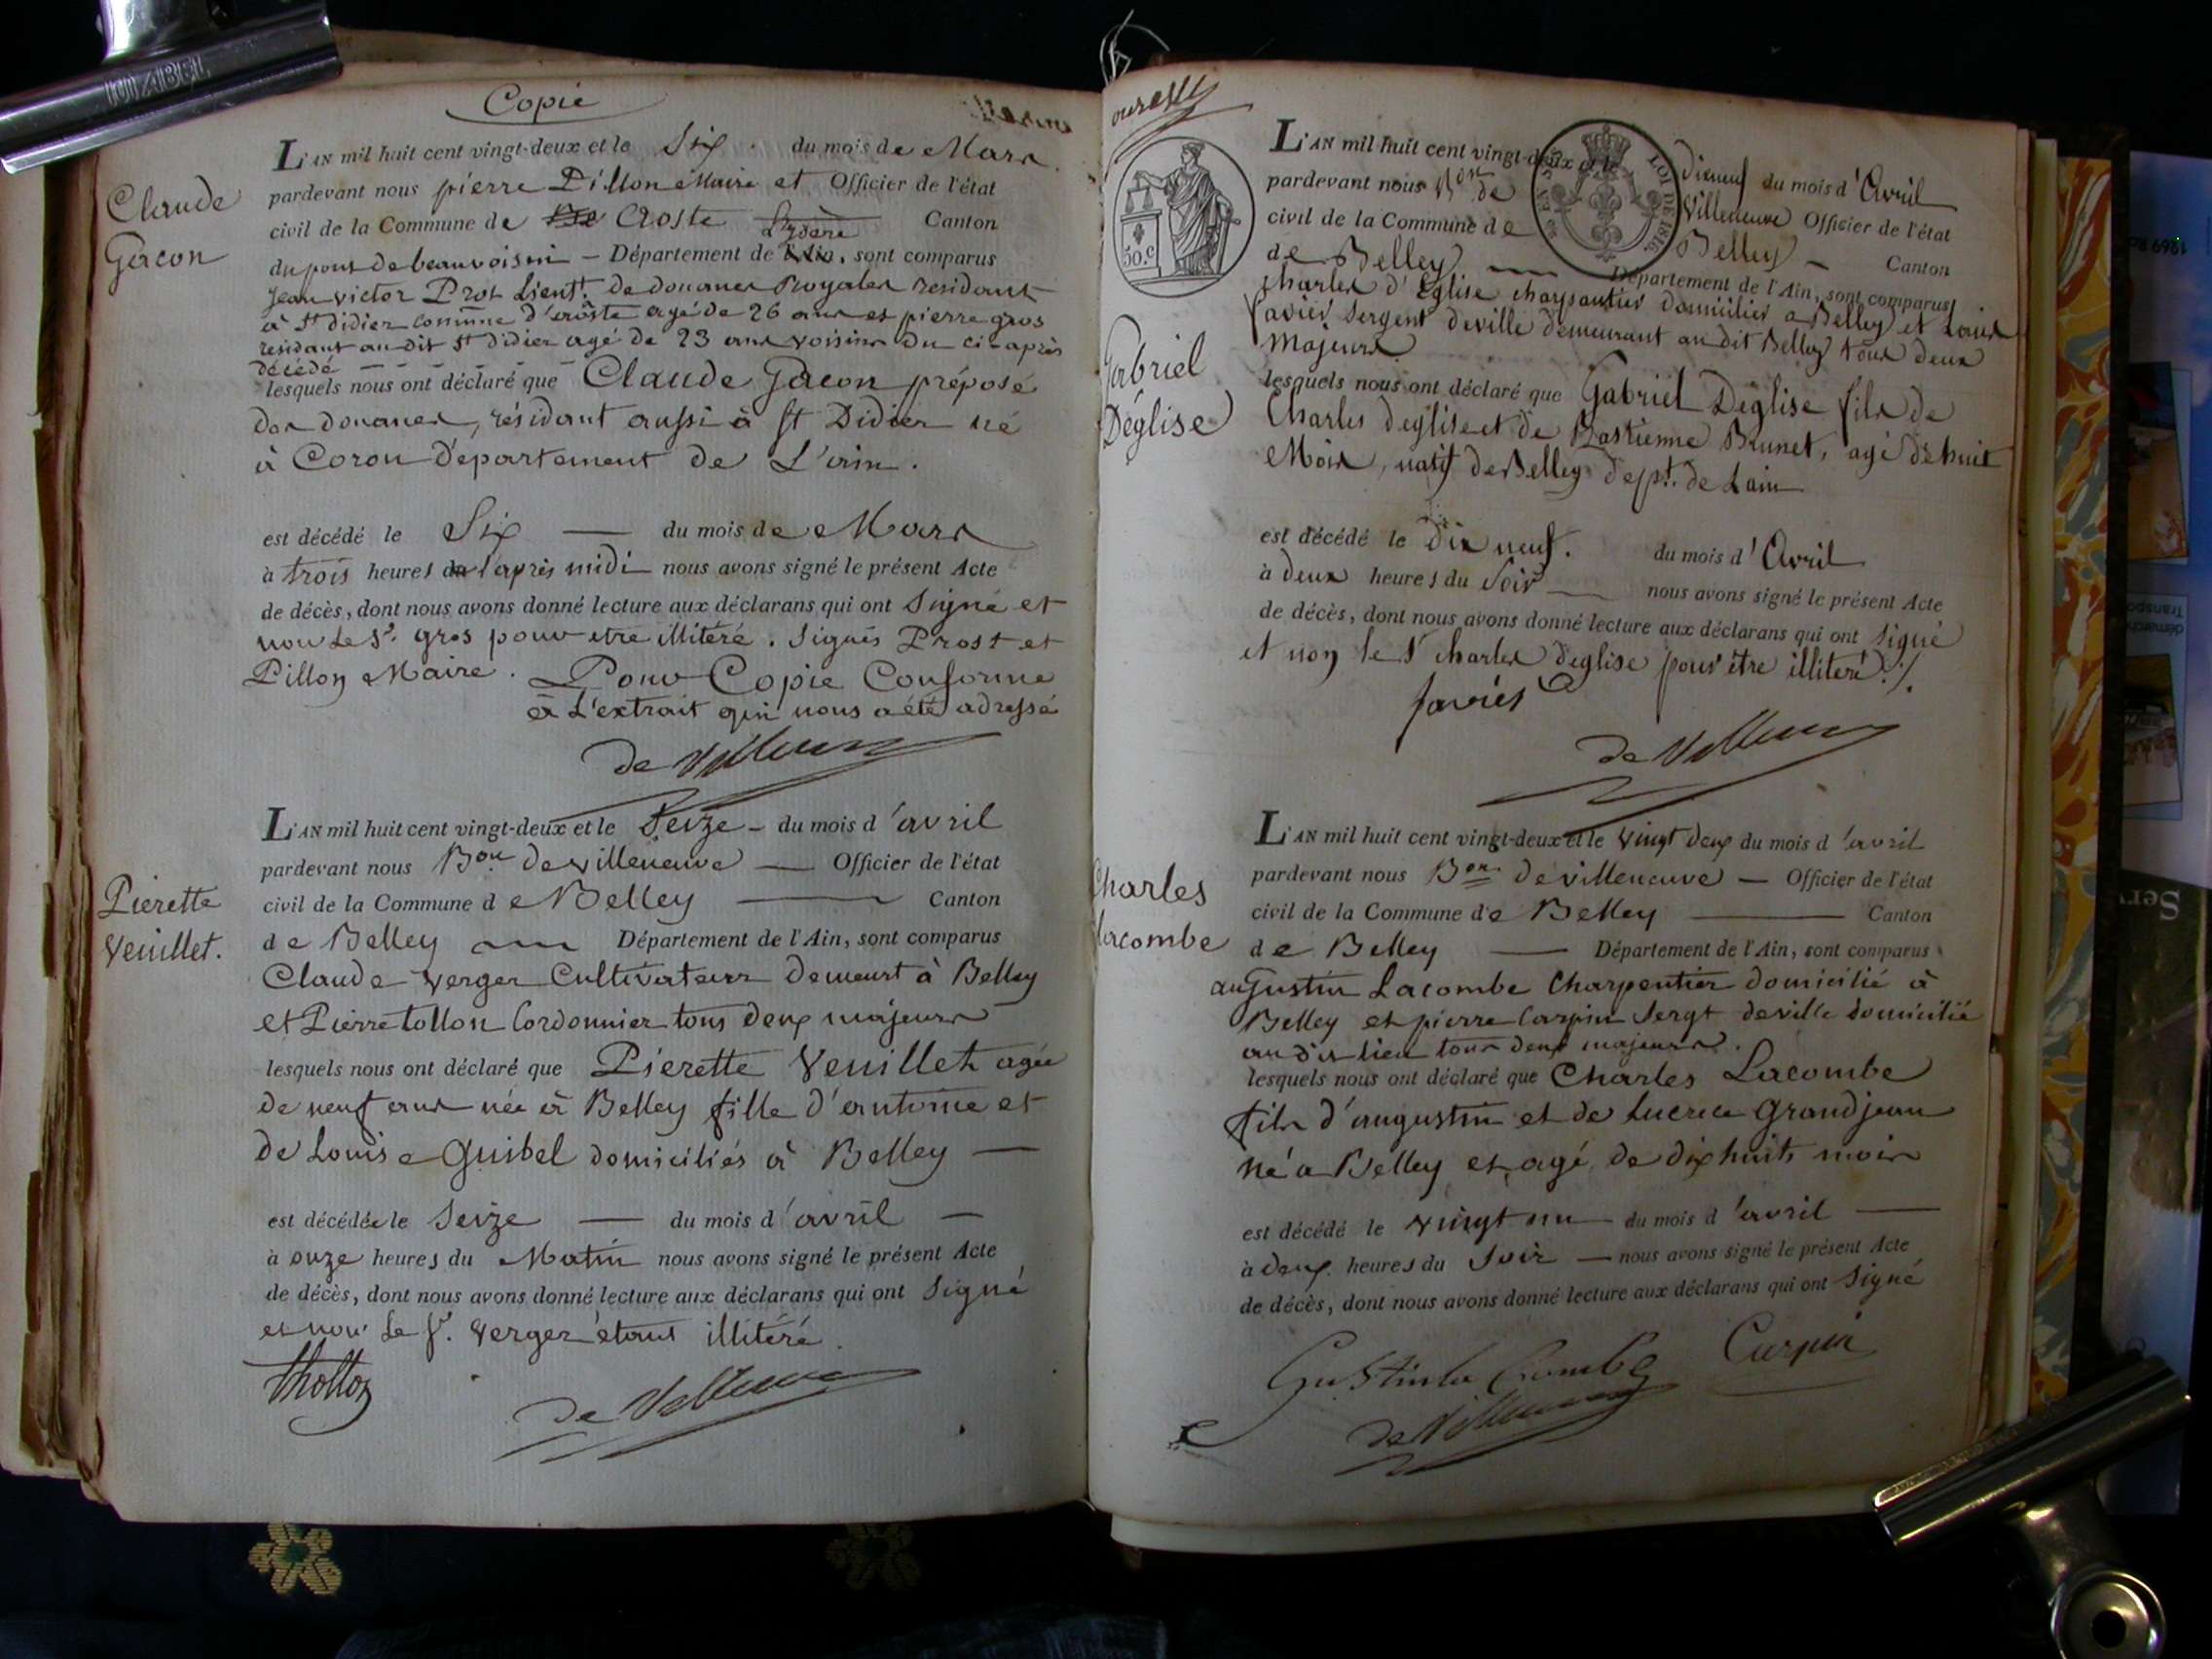 Copie
L'AN mil huit cent vingt-deux et le Six du mois de Mars
pardevant nous pierre Pillon Maire et Officier de l'état
civil de la Commune de Aoste Canton
L'ysère
du pont de beauvoisin – Département de l'Ain, sont comparus
Jean victor Prost Lieut. de douanes Royales residant
à St didier comune d'aoste agé de 26 ans et pierre gros
residant au dit St didier agé de 23 ans voisins du ci-après
décédé
lesquels nous ont déclaré que Claude Gacon préposé
des douanes, résidant aussi à St Didier né
à Coron département de L'ain.
est décédé le Six — du mois de Mars
à trois heures de l'après midi nous avons signé le présent Acte
de décès, dont nous avons donné lecture aux déclarans qui ont Signé et
non le Sr. gros pour etre illitéré. Signés Prost et
Pillon Maire. Pour Copie Conforme
à L'extrait qui nous a été adressé
de Villeneuve
Claude
Gacon
L'AN mil huit cent vingt-deux et le Seize – du mois d'avril
pardevant nous Bon de villeneuve — Officier de l'état
civil de la Commune de Belley — Canton
de Belley — Département de l'Ain, sont comparus
Claude Verger Cultivateur Demeurt à Belley
et Pierre tollon Cordonnier tous deux majeurs
lesquels nous ont déclaré que Pierette Veuillet agée
de neuf ans née à Belley fille d'antoine et
de Louise Guibel domiciliés à Belley —
est décédée le Seize — du mois d'avril —
à onze heures du Matin nous avons signé le présent Acte
de décès, dont nous avons donné lecture aux déclarans qui ont Signé
et non le Sr. Verger étant illitéré.
thollon
de Villeneuve
Pierette
Veuillet.
L'AN mil huit cent vingt-deux et le dixneuf du mois d'Avril
pardevant nous Bon de Villeneuve Officier de l'état
civil de la Commune de Belley – Canton
de Belley — Département de l'Ain, sont comparus
charles d'Eglise domicilié a Belley et Louis
favier Sergent deville demeurant au dit Belley tous deux
Majeurs.
lesquels nous ont déclaré que Gabriel Deglise fils de
Charles deglise et de Bastienne Brunet, agé de huit
Mois, natif de Belley dept. de Lain
est décédé le dix neuf. du mois d'Avril
à deux heures du Soir — nous avons signé le présent Acte
de décès, dont nous avons donné lecture aux déclarans qui ont Signé
et non le Sr charles deglise pour être illitéré./.
favier
de Villeneuve
Gabriel
Déglise
50.c
LOI DE 1816.
L'AN mil huit cent vingt-deux et le vingt deux du mois d'avril
pardevant nous Bon devilleneuve — Officier de l'état
civil de la Commune de Belley — Canton
de Belley — Département de l'Ain, sont comparus
augustin Lacombe Charpentier domicilié à
Belley et pierre Carpin Sergt deville domicilié
au dit lieu tous deux majeurs.
lesquels nous ont déclaré que Charles Lacombe
fils d'augustin et de Lucrece Grandjean
né a Belley et agé de dix huits mois
est décédé le vingt un du mois d'avril —
à deux heures du Soir — nous avons signé le présent Acte
de décès, dont nous avons donné lecture aux déclarans qui ont Signé
Gustinla Combe Carpin
de Villeneuve
Charles
Lacombe